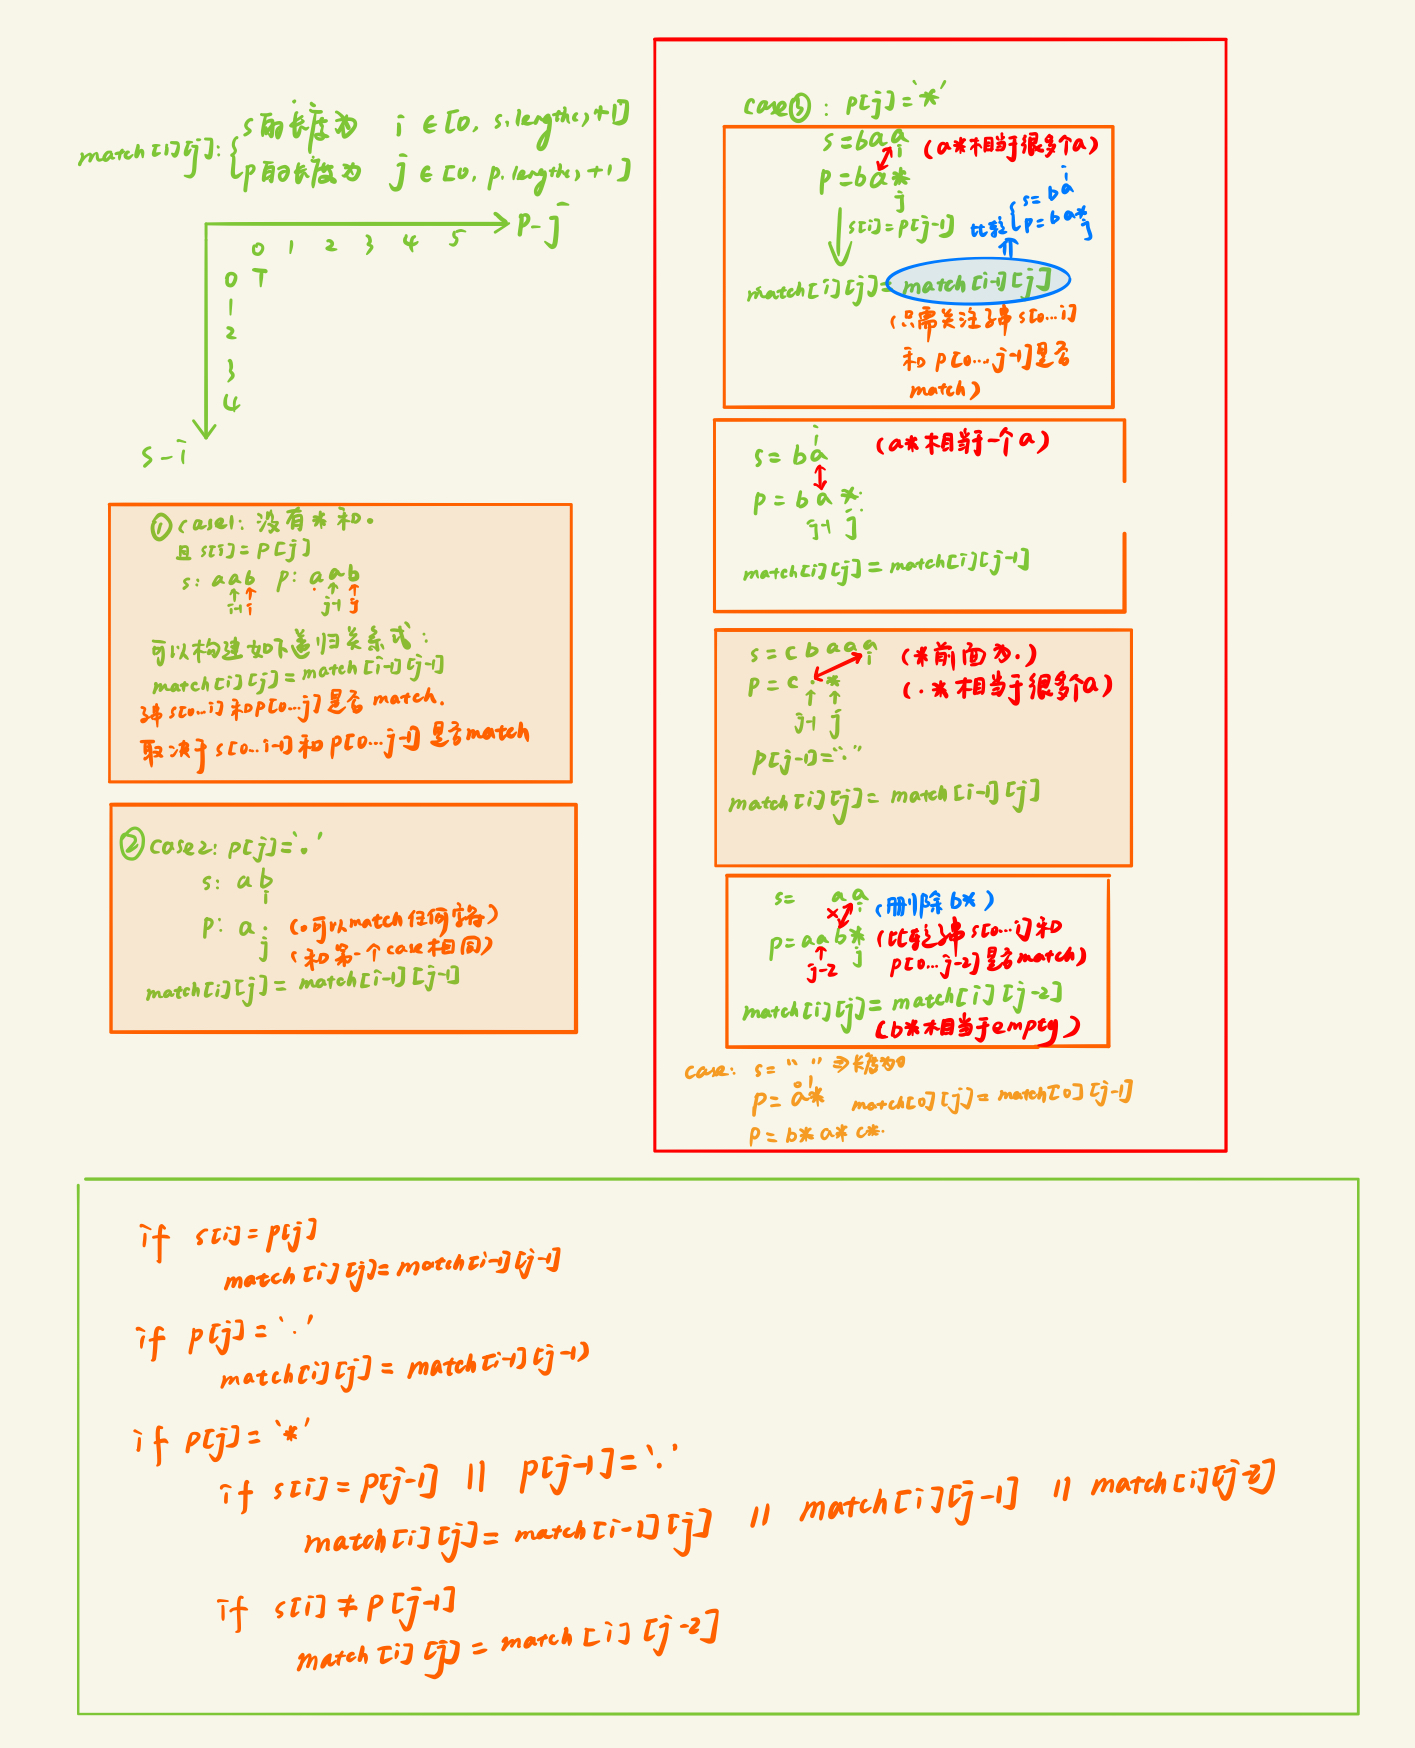 match[i][j]:
s的长度为 i ∈ [0, s.length()+1]
p的长度为 j ∈ [0, p.length()+1]
p-j
0 1 2 3 4 5
0 T
1
2
3
4
s-i
① case1: 没有*和.
且 s[i]=p[j]
s: aab p: aab
i-1 i j-1 j
可以构建如下递归关系式:
match[i][j]=match[i-1][j-1]
子串 s[0...i]和p[0...j]是否 match.
取决于 s[0...i-1]和 p[0...j-1] 是否match
② case2: p[j]='.'
s: ab
i
p: a.
j
(.可以match任何字符)
(和第一个case相同)
match[i][j]=match[i-1][j-1]
case③: p[j]='*'
s=baa
i
(a*相当于很多个a)
p=ba*
j
s[i]=p[j-1]
比较
i
s=ba
p=ba*
j
match[i][j]=match[i-1][j]
(只需关注子串 s[0...i]
和 p[0...j-1]是否
match)
i
s=ba
(a*相当于一个a)
p=ba*
j-1 j
match[i][j]=match[i][j-1]
s=cbaaa
i
(*前面为.)
p=c.*
(.*相当于很多个a)
j-1 j
p[j-1]="."
match[i][j]=match[i-1][j]
s= aa
i
(删除b*)
p=aab*
j-2 j
(比较子串 s[0...i]和
p[0...j-2]是否match)
match[i][j]=match[i][j-2]
(b*相当于empty)
case: s="" ⇒长度为0
0 1
p=a* match[0][j]=match[0][j-1]
p=b*a*c*.
if s[i]=p[j]
match[i][j]=match[i-1][j-1]
if p[j]='.'
match[i][j]=match[i-1][j-1)
if p[j]='*'
if s[i]=p[j-1] || p[j-1]='.'
match[i][j]=match[i-1][j] || match[i][j-1] || match[i][j-2]
if s[i]≠p[j-1]
match[i][j]=match[i][j-2]